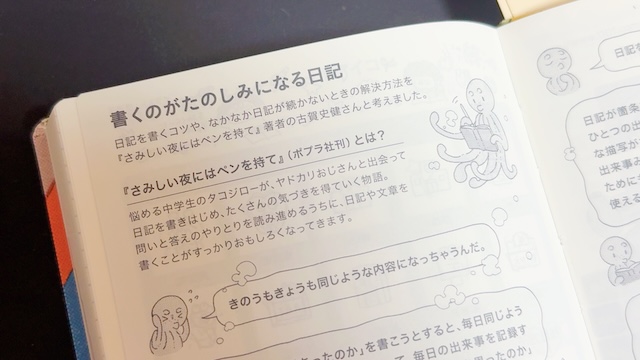 書くのがたのしみになる日記
日記を書くコツや、なかなか日記が続かないときの解決方法を
『さみしい夜にはペンを持て』著者の古賀史健さんと考えました。
『さみしい夜にはペンを持て』（ポプラ社刊）とは？
悩める中学生のタコジローが、ヤドカリおじさんと出会って
日記を書きはじめ、たくさんの気づきを得ていく物語。
問いと答えのやりとりを読み進めるうちに、日記や文章を
書くことがすっかりおもしろくなってきます。
きのうもきょうも同じような内容になっちゃうんだ。
ったのか」を書こうとすると、毎日同じよう
て、毎日の出来事を記録す
思ったのか」
日記を
日記が箇条
ひとつの出
な描写が
出来事
ために
使える